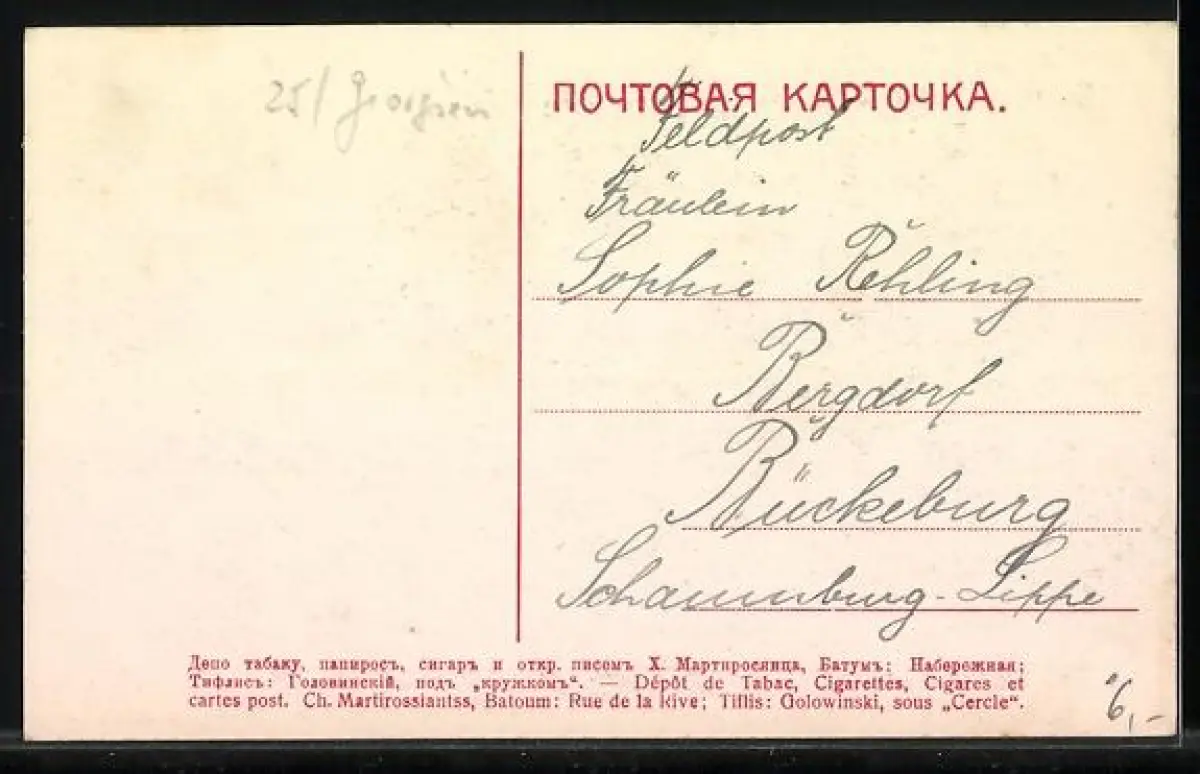 25/ Georgien
ПОЧТОВАЯ КАРТОЧКА.
Feldpost
Fräulein
Sophie Rehling
Bergdorf
Bückeburg
Schaumburg-Lippe
Депо табаку, папиросъ, сигаръ и откр. писемъ Х. Мартиросянца, Батумъ: Набережная;
Тифлисъ: Головинскій, подъ „кружкомъ“. — Dépôt de Tabac, Cigarettes, Cigares et
cartes post. Ch. Martirossiantss, Batoum: Rue de la Rive; Tiflis: Golowinski, sous „Cercle“.
6,-